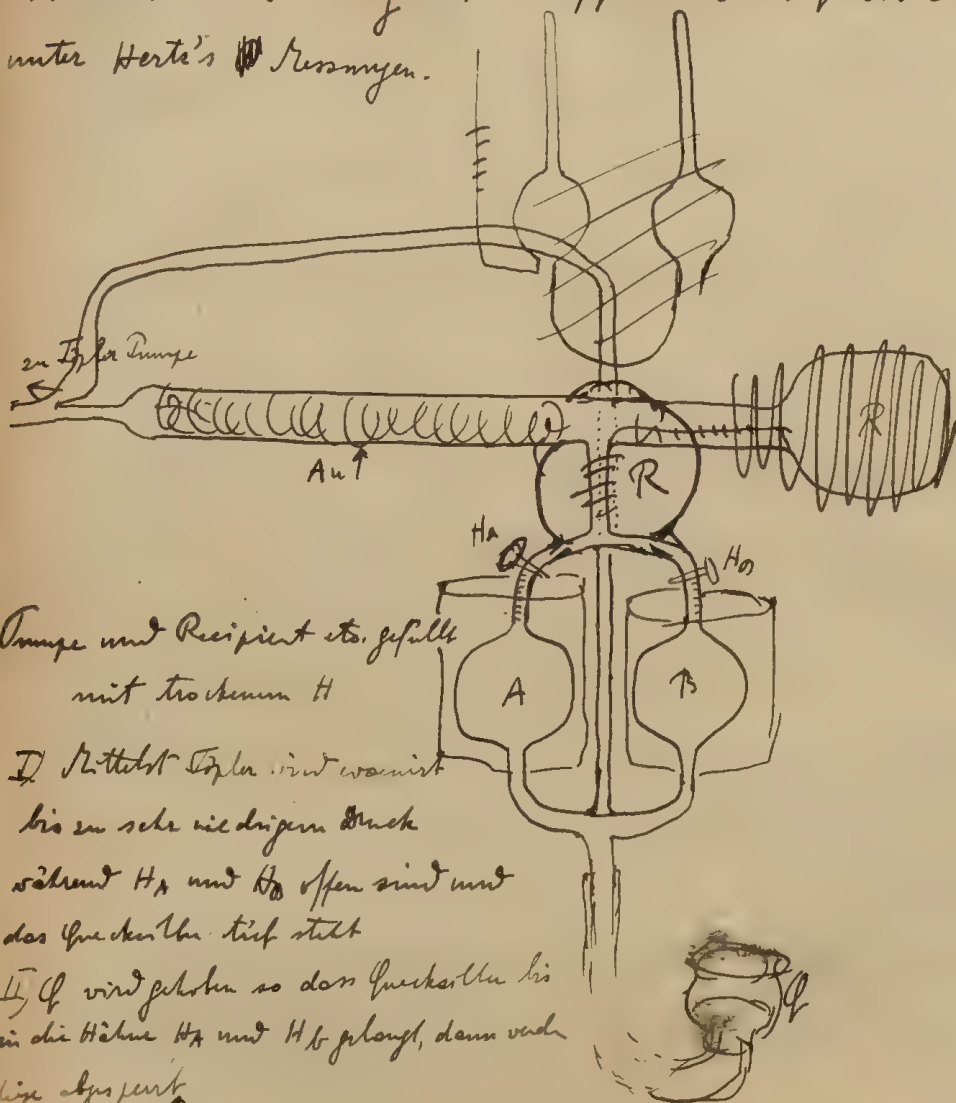 unter Hertz's Messungen.
zu Töpler Pumpe
Au
R
R
HA
HB
A
B
Pumpe und Recipient etc. gefüllt
mit trockenem H
I) Mittelst Töpler wird evacuirt
bis zu sehr niedrigem Druck
während HA und HB offen sind und
das Quecksilber tief steht
II) Q wird gehoben so dass Quecksilber bis
in die Hähne HA und HB gelangt, dann werden
diese abgesperrt
Q